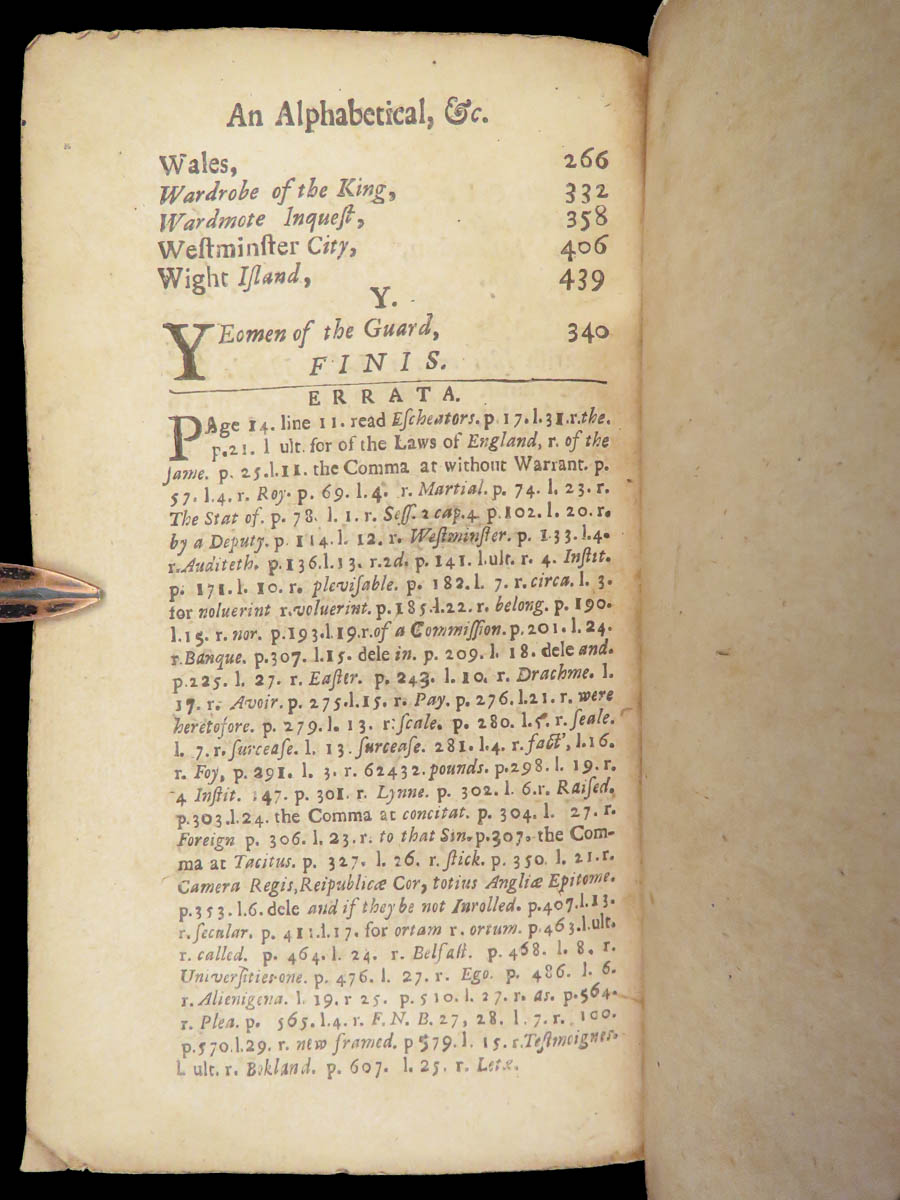 An Alphabetical, &c.
Wales, 266
Wardrobe of the King, 332
Wardmote Inqueſt, 358
Weſtminſter City, 406
Wight Iſland, 439
Y.
YEomen of the Guard, 340
FINIS.
ERRATA.
PAge 14. line 11. read Eſcheators. p. 17. l. 31. r. the.
p. 21. l ult. for of the Laws of England, r. of the
ſame. p. 25. l. 11. the Comma at without Warrant. p.
57. l. 4. r. Roy. p. 69. l. 4. r. Martial. p. 74. l. 23. r.
The Stat of. p. 78. l. 1. r. Seſſ. 2 cap. 4 p. 102. l. 20. r.
by a Deputy. p. 114. l. 12. r. Weſtminſter. p. 133. l. 4.
r. Auditeth. p. 136. l. 13. r. 2d. p. 141. l. ult. r. 4. Inſtit.
p. 171. l. 10. r. pleviſable. p. 182. l. 7. r. circa. l. 3.
for noluerint r. voluerint. p. 185. l. 22. r. belong. p. 190.
l. 15. r. nor. p. 193. l. 19. r. of a Commiſſion. p. 201. l. 24.
r. Banque. p. 307. l. 15. dele in. p. 209. l. 18. dele and.
p. 225. l. 27. r. Eaſter. p. 243. l. 10. r. Drachme. l.
17. r. Avoir. p. 275. l. 15. r. Pay. p. 276. l. 21. r. were
heretofore. p. 279. l. 13. r: ſcale. p. 280. l. 5. r. ſeale.
l. 7. r. ſurceaſe. l. 13. ſurceaſe. 281. l. 4. r. fact, l. 16.
r. Foy, p. 291. l. 3. r. 62432. pounds. p. 298. l. 19. r.
4 Inſtit. 147. p. 301. r. Lynne. p. 302. l. 6. r. Raiſed.
p. 303. l. 24. the Comma at concitat. p. 304. l. 27. r.
Foreign p. 306. l. 23. r. to that Sin. p. 307. the Com-
ma at Tacitus. p. 327. l. 26. r. ſtick. p. 350. l. 21. r.
Camera Regis, Reipublicæ Cor, totius Angliæ Epitome.
p. 353. l. 6. dele and if they be not Inrolled. p. 407. l. 13.
r. ſecular. p. 411. l. 17. for ortam r. ortum. p. 463. l. ult.
r. called. p. 464. l. 24. r. Belfaſt. p. 468. l. 8. r.
Univerſities one. p. 476. l. 27. r. Ego. p. 486. l. 6.
r. Alienigena. l. 19. r 25. p. 510. l. 27. r. as. p. 564.
r. Plea. p. 565. l. 4. r. F. N. B. 27, 28. l. 7. r. 100.
p. 570. l. 29. r. new framed. p 579. l. 15. r. Teſtmoignes.
l. ult. r. Bokland. p. 607. l. 25. r. Letæ.